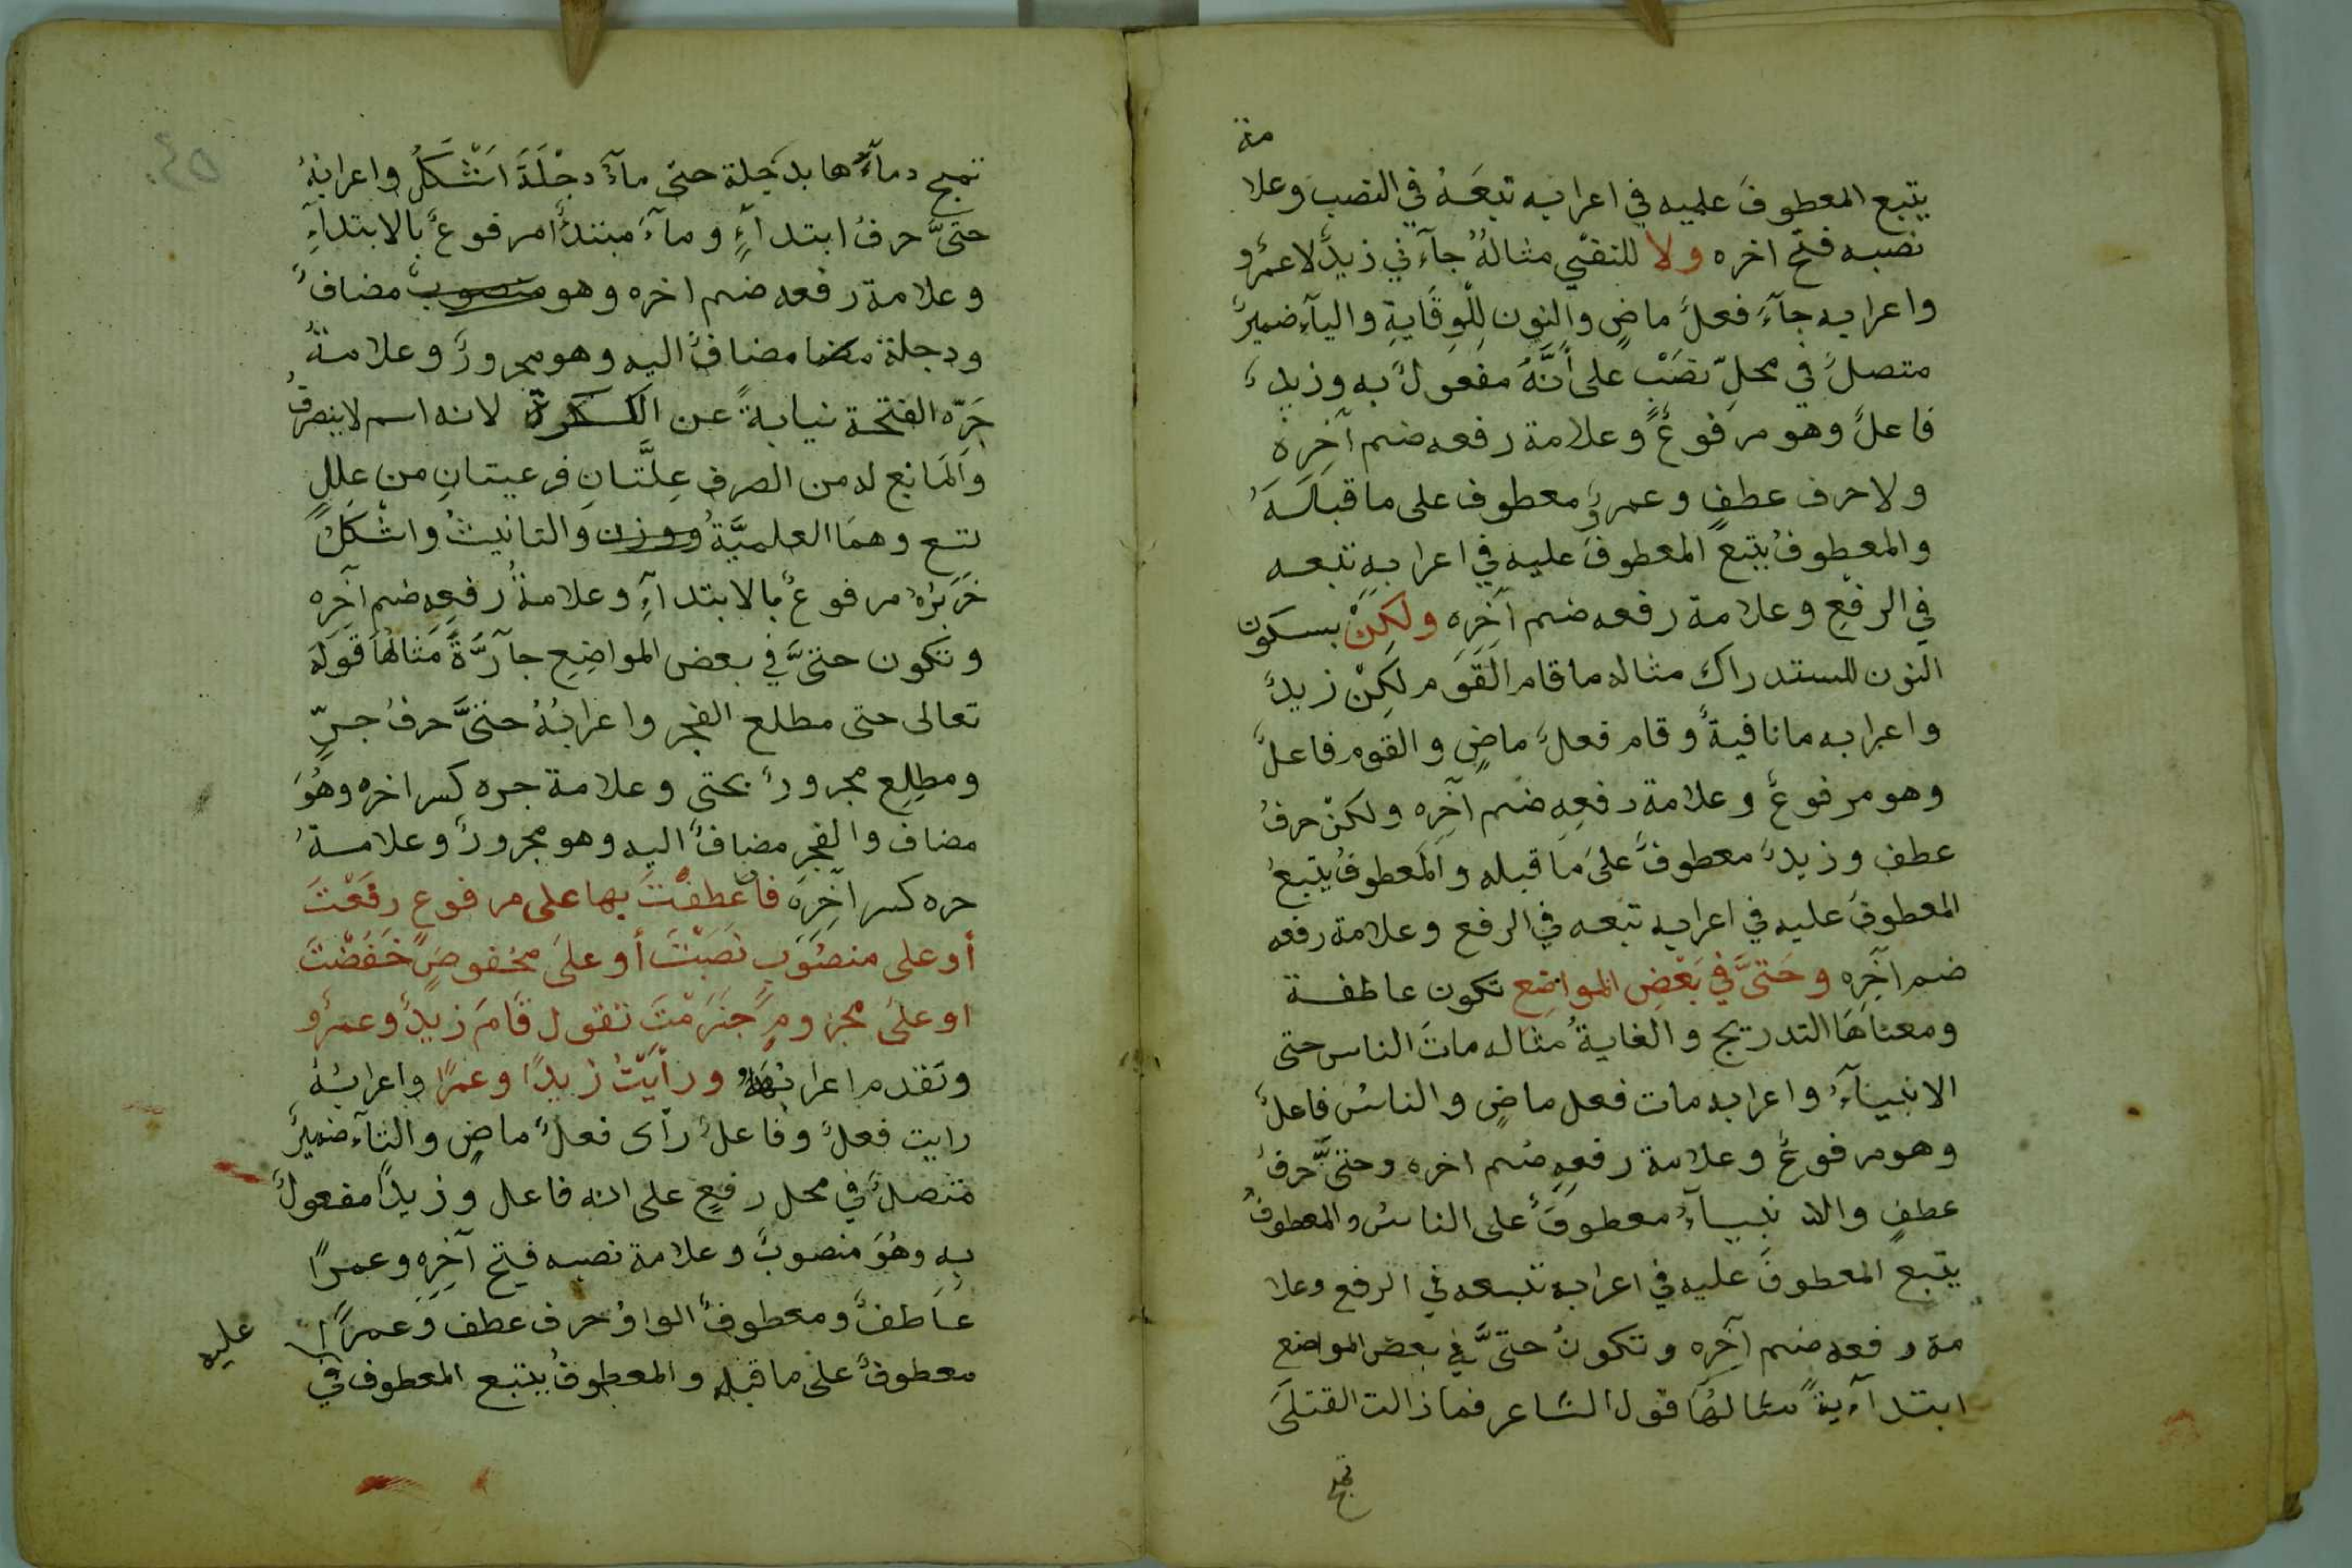 مة
يتبع المعطوفَ عليه في اعرابه تبعَهُ في النصب وعلا
نصبه فتح اخره ولا للنفي مثالهُ جآءني زيدٌ لا عمرٌو
واعرابه جآءَ فعلٌ ماضٍ والنون لِلْوِقَايةِ واليآء ضميرٌ
متصلٌ في محلّ نصَبْ على أنَّهُ مفعولٌ به وزيدٌ
فاعلٌ وهو مرفوعٌ وعلامة رفعه ضم آخِرِهْ
ولا حرف عطفٍ وعمروٌ معطوف على ما قبلَهُ
والمعطوفُ يتبعُ المعطوفَ عليه في اعرابِهِ تبعه
في الرفعِ وعلامة رفعه ضم آخِرِه ولكِنْ بسكون
النون للستدراك مثاله ما قام القَوم لكِنْ زيدٌ
واعرابه ما نافيةٌ وقام فعلٌ ماضٍ والقوم فاعلٌ
وهو مرفوعٌ وعلامة رفعِهِ ضم آخِرِه ولكنْ حرفُ
عطف وزيدٌ معطوفٌ علىَ مَا قبله والمَعطوفُ يتبعُ
المعطوفَ عليه في اعرابه تبعه في الرفع وعلامة رفعه
ضم آخِرِه وحَتىَّ في بَعْضِ المواضِع تكون عاطفة
ومعناهَا التدريج والغايةُ مثاله ماتَ الناس حتى
الانبيآءُ واعرابه مات فعل ماضٍ والناسُ فاعلٌ
وهو مرفوعٌ وعلامة رفعِهِ ضم اخره وحتىَّ حرفُ
عطفٍ والانبيآءُ معطوفٌ على الناسُ والمعطوفُ
يتبع المعطوفَ عليه في اعرابه تبعه في الرفع وعلا
مة رفعه ضم آخِرِه وتكونُ حتىَّ في بعض المواضع
ابتدآءيةً مثالهُا قول الشاعر فما زالت القتلىَ
تمج
تمج دمآءَها بدجلة حتى مآءُ دِجْلَةَ اَشْكَلُ واعرابُهُ
حتىَّ حرفُ ابتدآءٍ ومآءُ مبتدأٌ مرفوعٌ بالابتدآءِ
وعلامة رفعه ضم اخره وهو منصوب مضافٌ
ودجلة مضا مضافٌ اليه وهو مجرورٌ وعلامةُ
جَرّه الفتحة نيابةً عن الكسرة لانه اسم لا ينصرفُ
والمَانع له من الصرف عِلَّتانِ فرعيتانِ من عِللٍ
تسع وهمَا العلميَّةُ ووزن والتانيثُ واشْكَلُ
خَبَرُهُ مرفوعٌ بالابتدآءِ وعلامةُ رفعِهِ ضم آخِرِه
وتكون حتىَّ في بعض المواضِعِ جآرَّةً مَثالهُا قَولهَ
تعالى حتى مطلع الفجر واعرابُهُ حتىَّ حرفُ جرٍّ
ومطلِعِ مجرورٌ بحتى وعلامة جره كسر اخره وهُوَ
مضاف والفجرِ مضافٌ اليه وهو مجرورٌ وعلامةُ
جره كسر آخِرِهِ فان عَطفْتَ بها على مرفوعٍ رفَعْتَ
أو على منصُوبٍ نَصَبْتَ أو علىَ مخفوضٍ خَفَضْتَ
او علىَ مجزومٍ جَزَمْتَ تقول قَامَ زيدٌ وعمرٌو
وتقدم اعرابُهُ ورأيْتُ زيدًا وعمرًا واعرابُهُ
رايت فعلٌ وفاعلٌ رأى فعلٌ ماضٍ والتآء ضميرٌ
متصلٌ في محل رفعٍ على انه فاعل وزيداً مفعولٌ
بهِ وهُوَ منصوبٌ وعلامة نصبه فتح آخِرِه وعمرًا
عاطفٌ ومعطوفٌ الواوُ حرف عطف وَعمراً
معطوفٌ على ما قبله والمعطوفُ يتبع المعطوف في
عليه